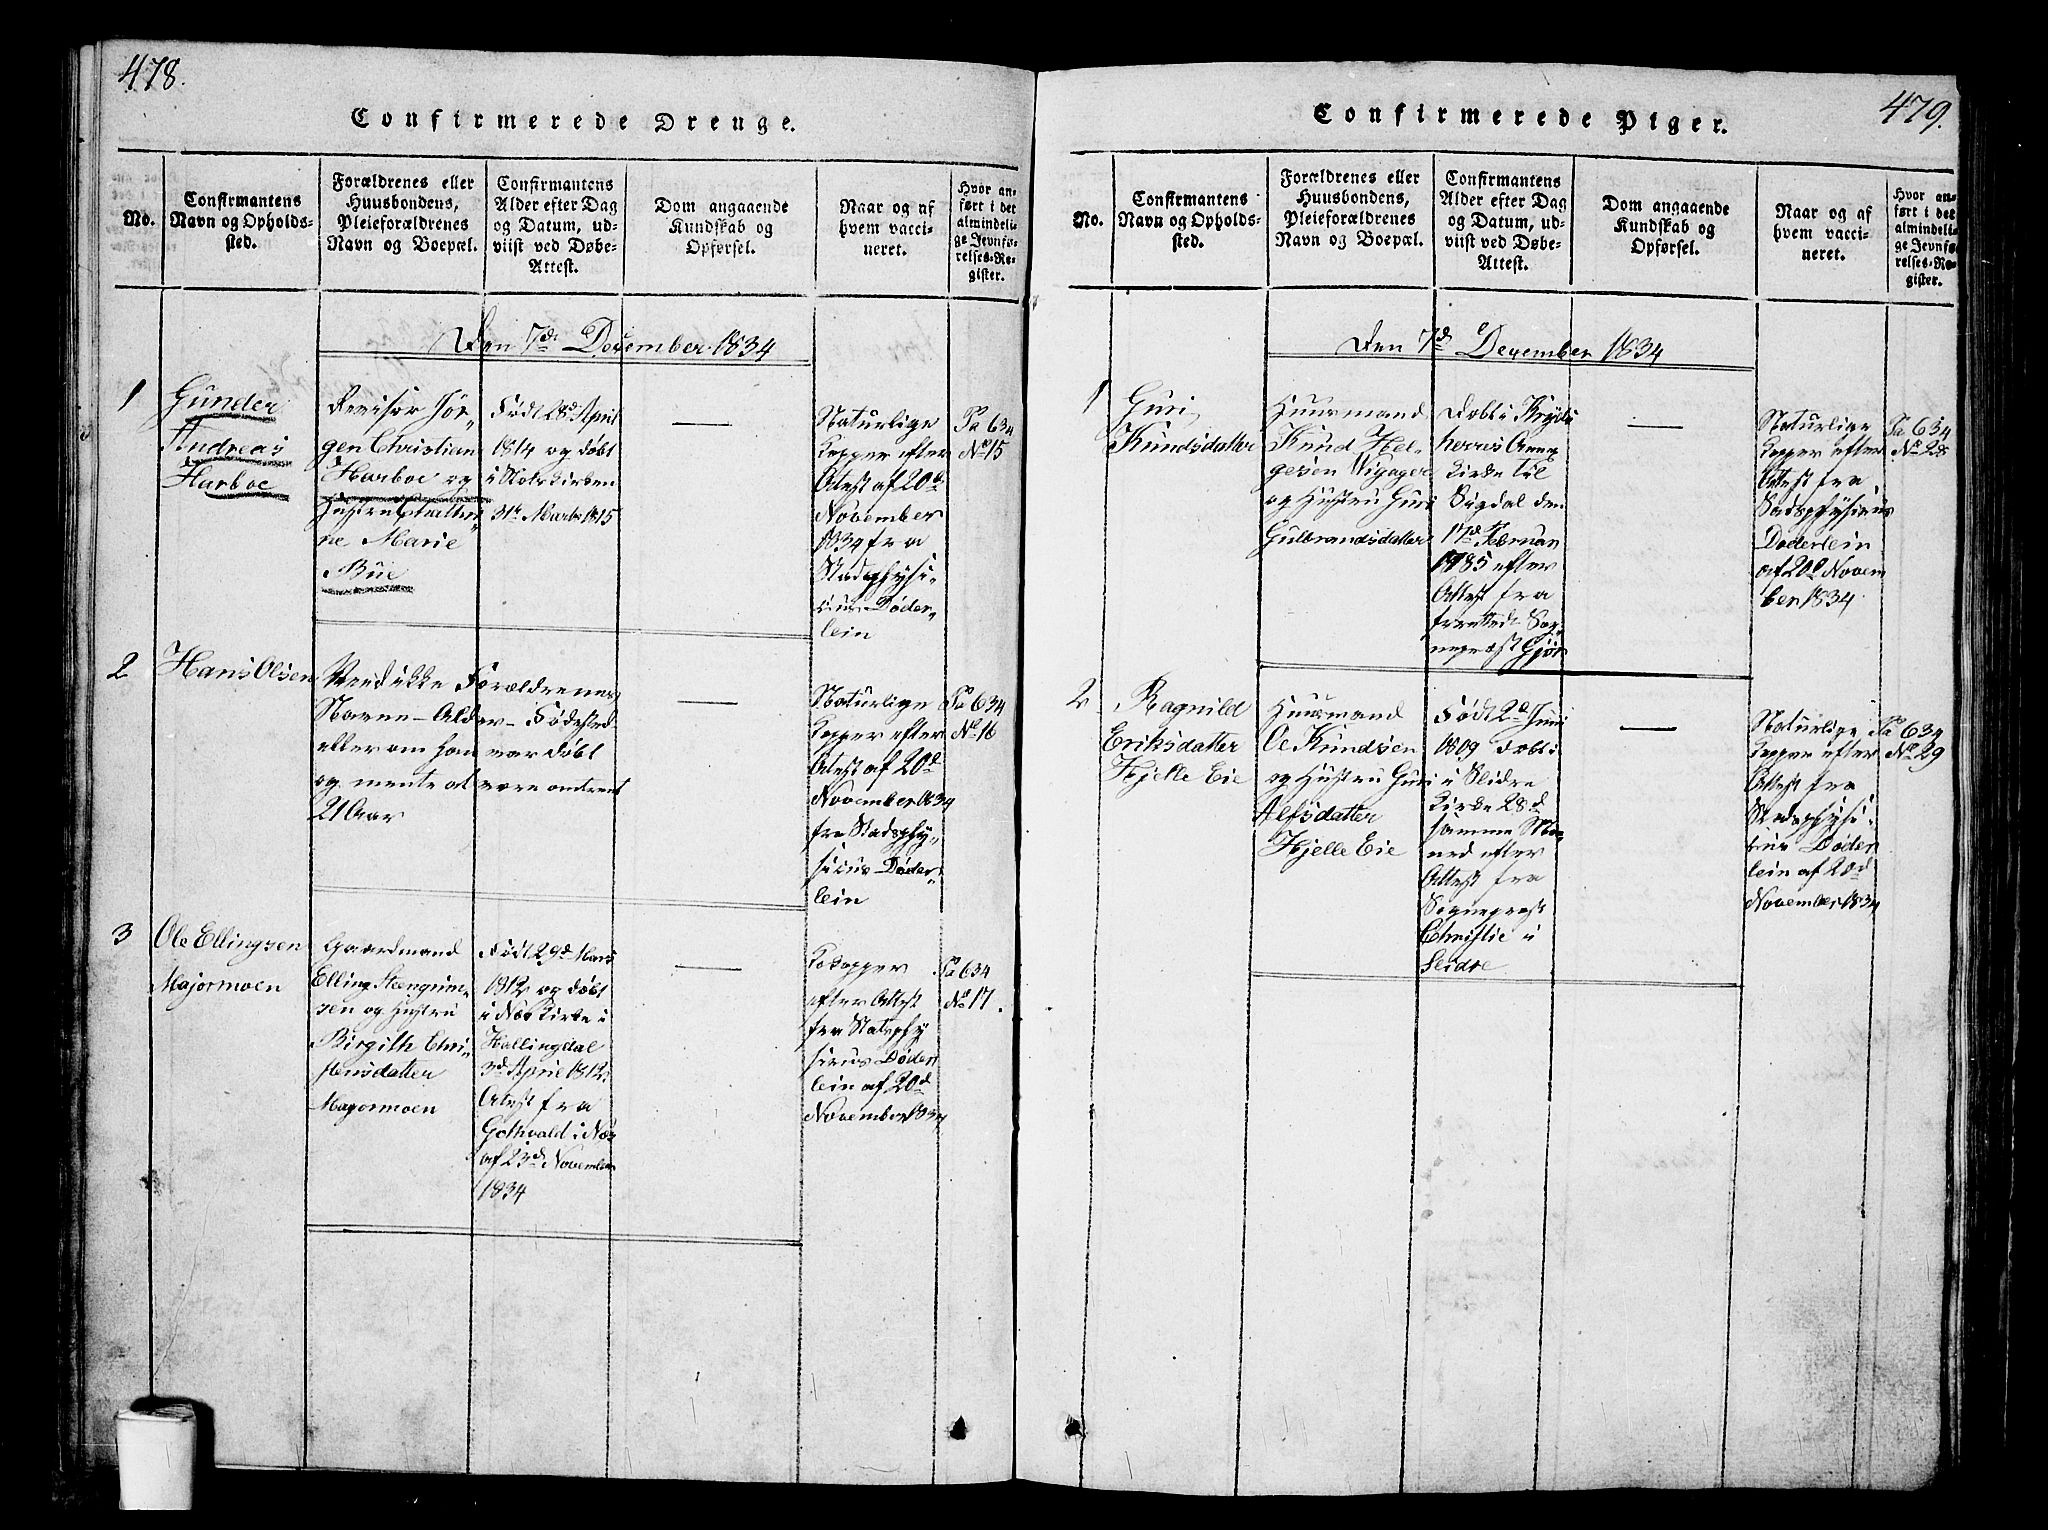 478.
Confirmerede Drenge.
No.
Confirmantens
Navn og Opholds-
sted.
Forældrenes eller
Huusbondens,
Pleieforældrenes
Navn og Boepæl.
Confirmantens
Alder efter Dag
og Datum, ud-
viist ved Døbe-
Attest.
Dom angaaende
Kundskab og
Opførsel.
Naar og af
hvem vacci-
neret.
Hvor an-
ført i det
almindeli-
ge Jevnfø-
relses-Re-
gister.
Den 7de December 1834
1
Gunder
Andreas
Harboe
Revisor Jør-
gen Christian
Harboe og
Hustru
Marie
Bue
Født 28d April
1814 og døbt
31te Marts 1815
—
Naturlige
Kopper efter
Attest af 20de
November
1834 fra
Stadsphysi-
cus Døder-
lein
Pa 634
No 15
2
Hans Olsen
Veed ikke Forældrenes
Navne - Alder - Fødested
eller om han var døbt
og mente at være omtrent
21 Aar
—
Naturlige
Kopper efter
Attest af 20d
November 1834
fra Stadsphy-
sicus Døder-
lein
Pa 634
No 16
3
Ole Ellingsen
Majormoen
Gaardmand
Elling Steengrim-
sen og Hustru
Birgith Chri-
stensdatter
Majormoen
Født 29d Mars
1812 og døbt
i Næs Kirke i
Hallingdal
3d April 1812
Attest fra
Gothvald i Næs
af 23d November
1834
—
Kokopper
efter Attest
fra Stadsphy
sicus Døder
lein af 20d
November 1834
Pa 634
No 17.
479.
Confirmerede Piger.
No.
Confirmantens
Navn og Opholds-
sted.
Forældrenes eller
Huusbondens,
Pleieforældrenes
Navn og Boepæl.
Confirmantens
Alder efter Dag
og Datum, ud-
viist ved Døbe-
Attest.
Dom angaaende
Kundskab og
Opførsel.
Naar og af
hvem vacci-
neret.
Hvor an-
ført i det
almindeli-
ge Jevnfø-
relses-Re-
gister.
Den 7de December 1834
1
Guri
Knudsdatter
Huusmand
Knud Hel-
gesen Wigager
og Hustru Guri
Gulbrandsdatter
Døbt i Krydts
herres Annex
Kirke til
Sigdal den
17d Februar
1785 efter
Attest fra
Sog-
nepræst
—
Naturlige
Kopper efter
Attest fra
Stadsphysicus
Døderlein
af 20d Novem
ber 1834
Pa 634
No 28
2
Ragnild
Eriksdatter
Hjelle Eie
Huusmand
Knudsen
og Hustru Guri
Alfsdatter
Hjelle Eie
Født 2d Juni
1809 Døbt i
Slidre
Kirke 28d
samme Ma-
ned efter
Attest fra
Sognepræst
Christie i
Slidre
—
Naturlige
Kopper efter
Attest fra
Stadsphysi-
cus Døder
lein af 20d
November 1834
Pa 634
No 29